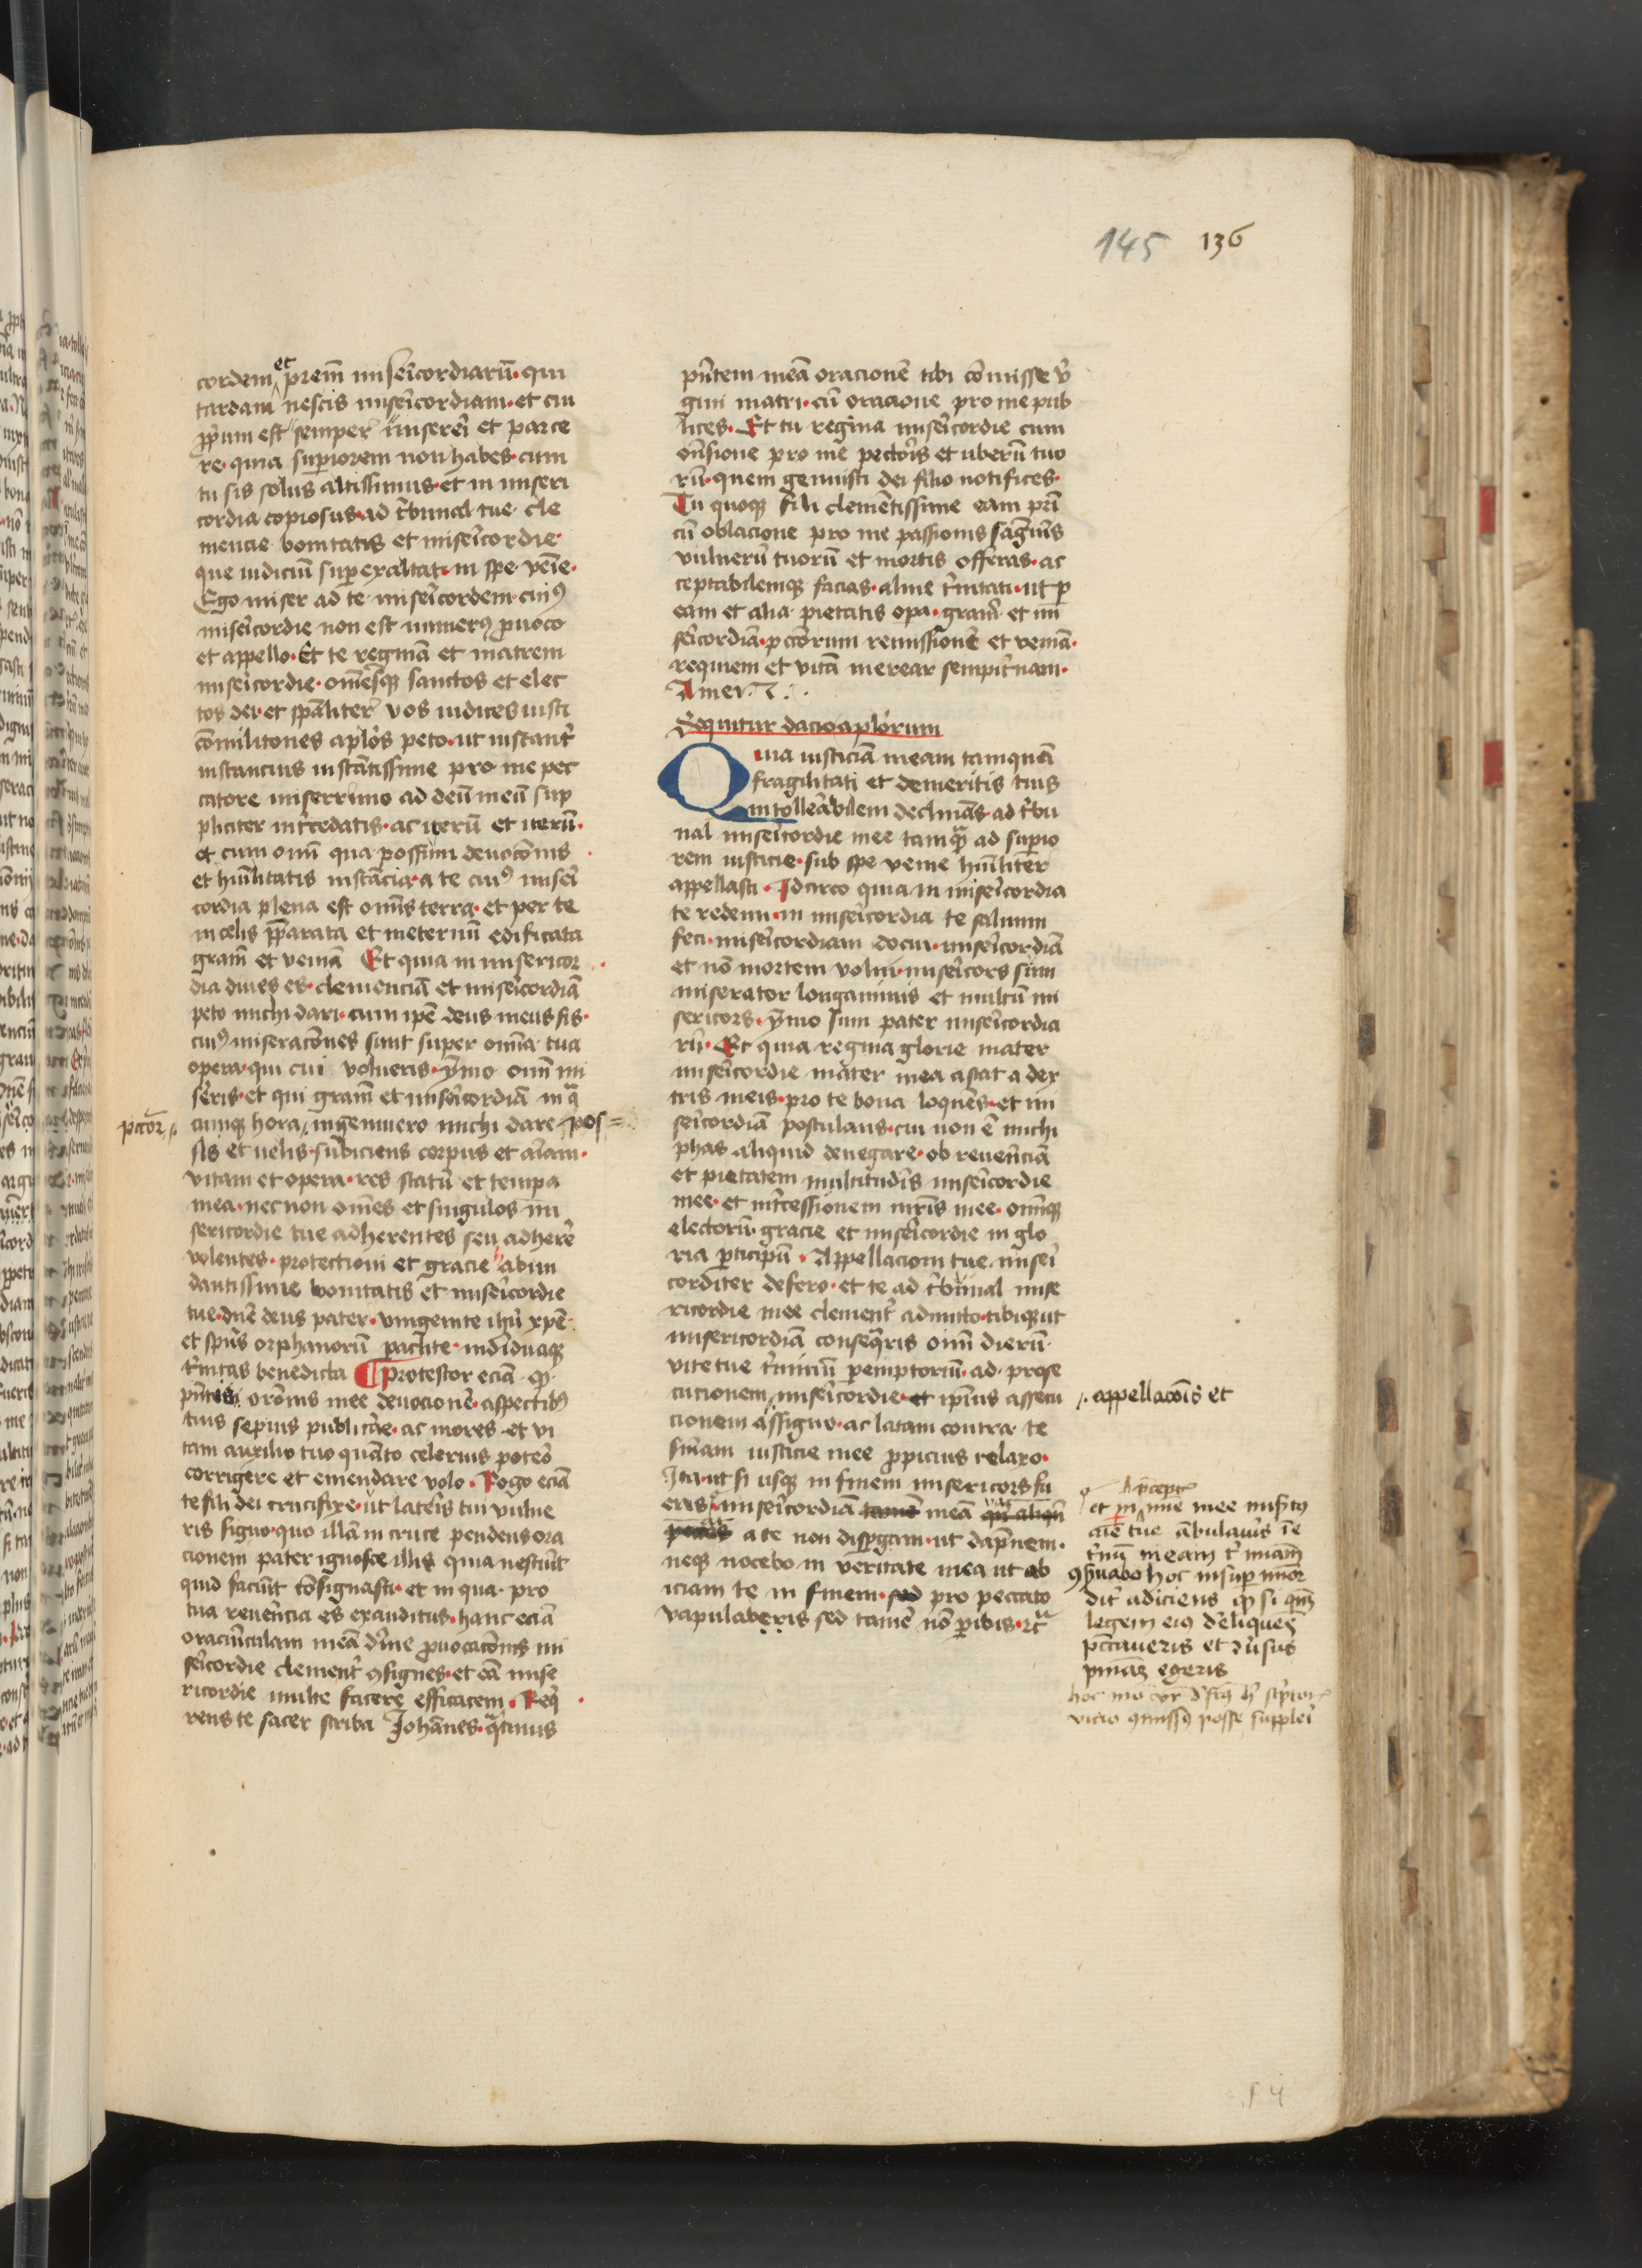 145 136
cordem et prem̄ misericordiarū· qui
tardam nescis misericordiam· et cui
ꝓprium est semper misereri et parce
re· quia superiorem non habes· cum
tu sis solus altissimus· et in miseri
cordia copiosus· ad tribunal tue cle
mencie bonitatis et misericordie·
que iudiciū superexaltat· in spe venie·
Ego miser ad te misericordem· cuiꝰ
misericordie non est numerꝰ ꝓuoco
et appello· Et te reginā et matrem
misericordie· om̄esqꝫ sanctos et elec
tos dei· et spāliter vos iudices iusti
cōmilitones aplōs peto· ut instanter
instancius instātissime pro me pec
catore miserrimo ad deū meū sup
pliciter intercedatis· ac iterū et iterū·
et cum omī qua possum deuocōnis
et hūilitatis instācia· a te cuiꝰ miseri
cordia plena est omīs terra· et per te
in celis p̄parata et in eternū edificata
gram̄ et veniā Et quia in misericor
dia diues es· clemenciā et misericordiā
peto michi dari· cum ipē deus meus sis·
cuiꝰ miseracōnes sunt super omīa tua
opera· qui cui volueris· ymo omī mi
seris· et qui gram̄ et misericordiā in q
pctor̄ cunqꝫ hora ingemuero michi dare pos=
sis et uelis· subiciens corpus et aīam·
vitam et opera· res statū et tempa
mea· nec non om̄es et singulos mi
sericordie tue adherentes seu adherere
volentes· protectioni et gracie abun
dantissime bonitatis et misericordie
tue· dn̄e deus pater· vnigenite ihū xpē·
et spūs orphanorū paclite· indiuiduaqꝫ
trinitas benedicta ¶ Protestor eciā qꝫ
pn̄tis orōnis mee deuocionē aspectibꝰ
tuis sepius publicare· ac mores et vi
tam auxilio tuo quāto celerius potero
corrigere et emendare volo· Rogo eciā
te fili dei crucifixe· ut lateris tui vulne
ris signo· quo illā in cruce pendens ora
cionem pater ignosce illis quia nesciūt
quid faciūt cōsignasti· et in qua pro
tua reuerēcia es exauditus· hanc eciā
oraciūculam meā dn̄e ꝓuocacōnis mi
sericordie clementer ꝯsignes· et eā mise
ricordie multe facere efficacem· Requi
rens te sacer scriba Johānes· qtinus
pn̄tem meā oracionē tibi cōmisse vir
gini matri· cū oracione pro me pub
lices· Et tu regina misericordie cum
ostēsione pro me pectoris et uberū tuo
rū· quem genuisti dei filio notifices·
Tu quoqꝫ fili clemētissime eam pri
cū oblacione pro me passionis sāguīs
vulnerū tuorū et mortis offeras· ac
ceptabilemqꝫ facias· alme trinitati· ut ꝑ
eam et alia pietatis opa· gram̄ et mi
sericordiā· pctōrum remissionē et veniā·
requiem et vitā merear sempiternam·
Amen
Sequitur dacio aplorum
Quia iusticiā meam tamquā
fragilitati et demeritis tuis
intollerabilem declinās· ad tribu
nal misericordie mee tamqꝫ ad superio
rem iusticie· sub spe venie hūiliter
appellasti· Idcirco quia in misericordia
te redemi· in misericordia te saluum
feci· misericordiam docui· misericordiā
et nō mortem volui· misericors sum
miserator longanimis et multū mi
sericors· ymo sum pater misericordia
rū· Et quia regina glorie mater
misericordie mater mea astat a dex
tris meis· pro te bona loquēs· et mi
sericordiā postulans· cui non ē michi
phas aliquid denegare· ob reuerēciā
et pietatem multitudīs misericordie
mee· et intercessionem mr̄is mee· omīqꝫ
electorū· gracie et misericordie in glo
ria ꝑticipū· Appellacioni tue miseri
corditer defero· et te ad tribunal mise
ricordie mee clementer admitto· tibiqꝫ ut
misericordiā consequris omī dierū·
vite tue terminū peremptoriū· ad prose
cucionem misericordie· et ipīus assecu
cionem assigno· ac latam contra te
sn̄iam iusticie mee ꝓpicius relaxo·
Ita· ut si usqꝫ in finem misericors fu
eris misericordiā meā
a te non dispergam· ut dāpnem·
neqꝫ nocebo in veritate mea ut ab
iciam te in finem· sed pro peccato
vapulaberis sed tamē nō peribis· etc
appellacōis et
hoc insuper
dit adiciens qꝫ si
legem eiꝰ
pctaueris et
pniam egeris